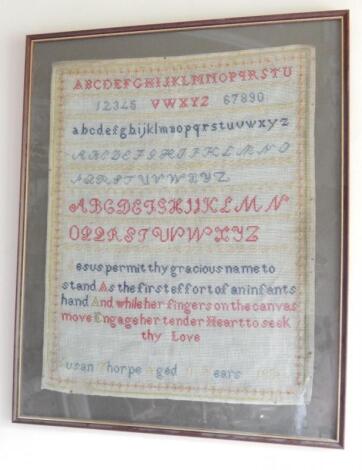 ABCDEFGHIJKLMNOPQRSTU
12345 VWXYZ 67890
abcdefghijklmnopqrstuvwxyz
ABCDEFGHIJKLMNO
PQRSTUVWXYZ
ABCDEFGHIJKLMN
OPQRSTUVWXYZ
esus permit thy gracious name to
stand As the first effort of an infants
hand And while her fingers on the canvas
move Engage her tender Heart to seek
thy Love
usan Thorpe Aged ears